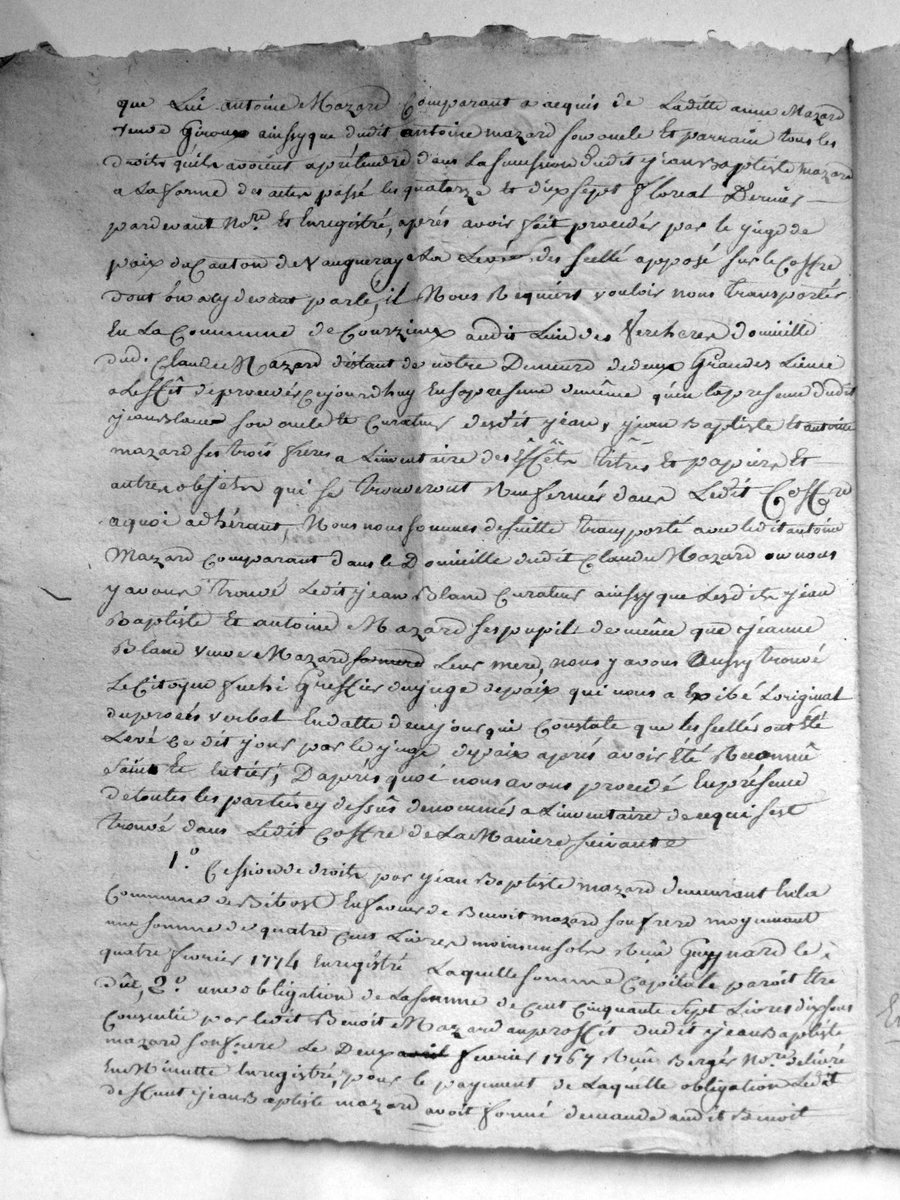 que Lui antoine Mazard Comparant a acquis de Laditte anne Mazard
veuve Giroux ainssy que dudit antoine mazard son oncle Et parrain tous les
droits quils avoient a prétendre dans La sucession dudit jean Baptiste mazard
a La forme des actes passé les quatorze et dix sept floreal Dernier
pardevant Nore Et Enregistré, aprés avoir fait proceder par le juge de
paix du Canton de Vaugneray a La Levée des scellé apposé sur le Coffre
dont on a cy devant parlé, il Nous Requiert vouloir nous transporter
En La Commune de Courzieux audit Lieu des Verchere domicille
dud. Claude Mazard distant de notre Demeure de deux Grandes Lieues
a Leffêt de proceder cejourdhuy En sa presence de même qu'en la presence dudit
jean Blanc son oncle Et Curateur desdit jean, jean Baptiste Et antoine
mazard ses trois freres a Linventaire des Effêts titres Et papiers Et
autres objets qui se trouveront Renfermés dans Ledit Coffre
a quoi adhérant Nous nous sommes de suitte transporté avec ledit antoine
Mazard comparant dans le Domicille dudit Claude Mazard ou nous
y avons trouvé Ledit jean Blanc Curateur ainssy que Lesdits jean
Baptiste Et antoine Mazard ses pupils de même que jeanne
Blanc veuve Mazard Leur mere, nous y avons aussy trouvé
Le Citoyen Greffier du juge de paix qui nous a Exibé Loriginal
du procés verbal En datte de ce jour qui Constate que les scellés ont Eté
Levé Ce dit jour par le juge de paix aprés avoir Eté Reconnû
sains Et Entiers; D'aprés quoi nous avons procedé En présence
de toutes les parties cy dessûs denommés a Linventaire de ce qui s'est
trouvé dans Ledit Coffre de La Maniere suivante
1.o Cession de droits par jean Baptiste mazard demeurant En la
Commune de Bibost En faveur de Benoit mazard son frere moyennant
une somme de quatre Cent Livres moins un sols Reçû Guynard le
quatre fevrier 1774 Enregistré Laquelle somme Capitale paroit Etre
dûe, 2.o une obligation de La somme de Cent Cinquante Sept Livres dix sous
Consentie par ledit Benoit Mazard au proffit dudit jean Baptiste
mazard son frere Le Deux fevrier 1767 Reçû Berger Nore delivré
En Minutte Enregistré, pour le payement de Laquelle obligation Ledit
deffunt jean Baptiste mazard avoit formé demande audit Benoit